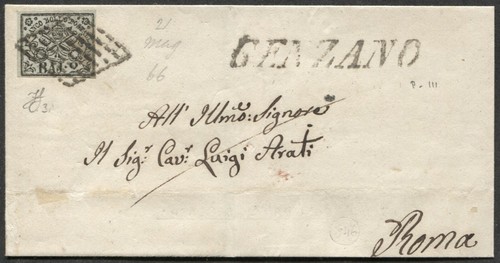 BAJ. 2
21
mag
66
GENZANO
P. III
All' Illmo: Signore
Il Sigr. Cavr. Luigi Arati
Roma